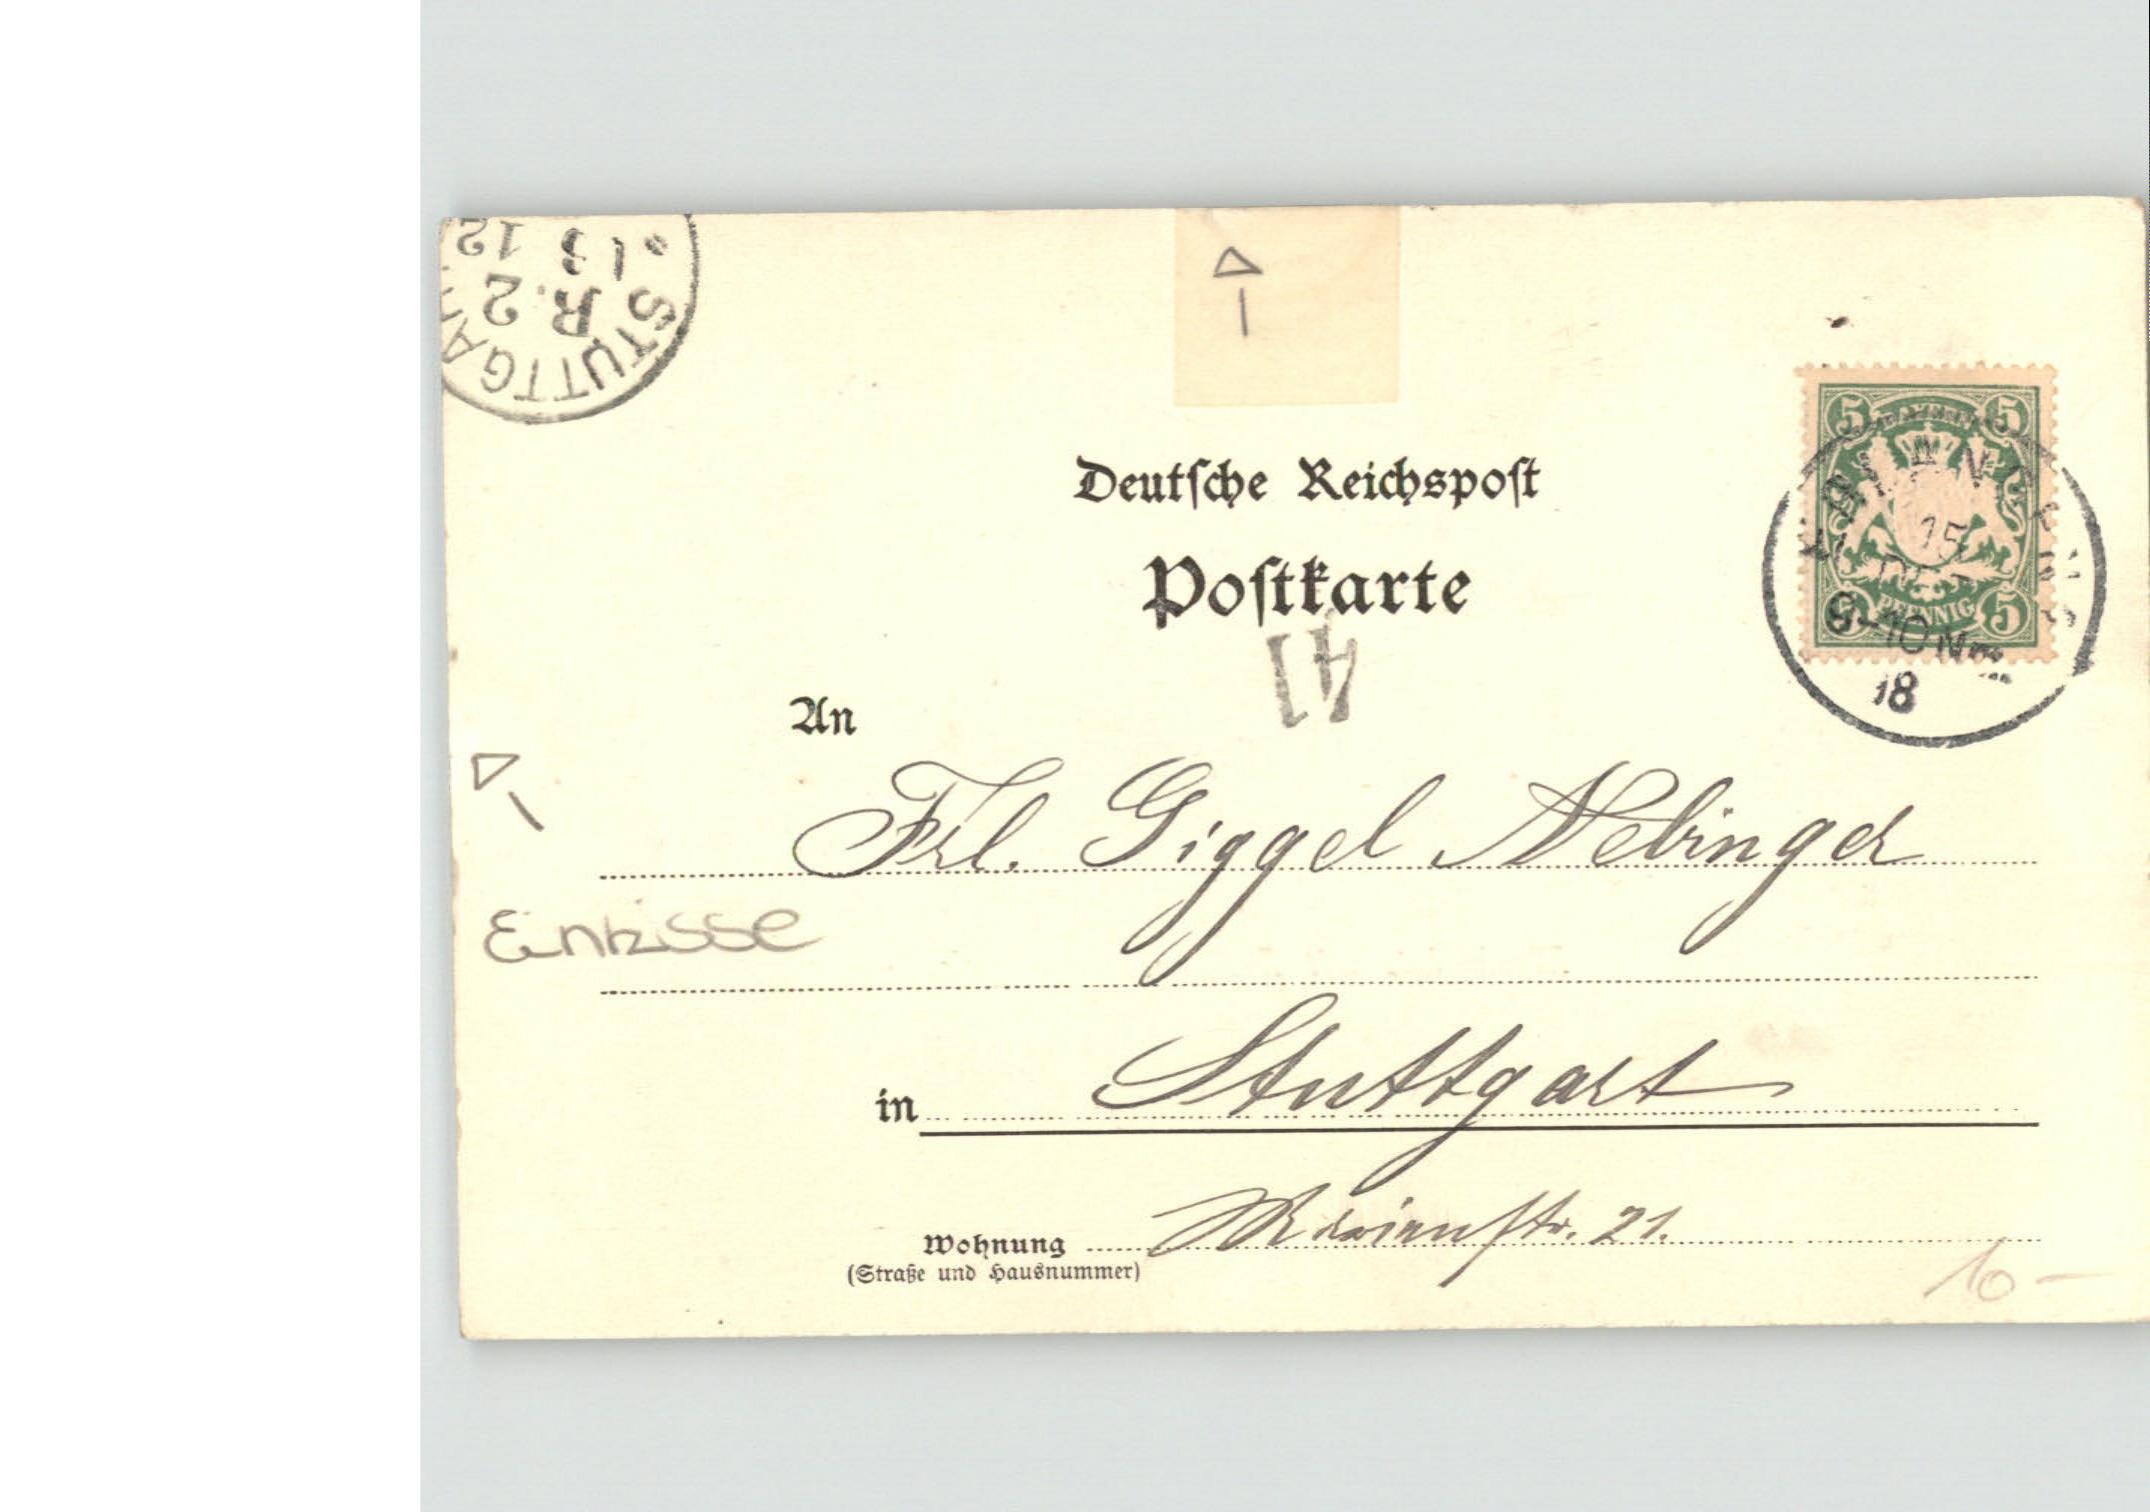 STUTTGA
R. 2
12
Deutsche Reichspost
Postkarte
41
5 5
BAYERN
15
PFENNIG
5 5
9-10 Nm
18
An
Frl. Giggel Nebinger
Einrisse
in Stuttgart
Wohnung Marienstr. 21.
(Straße und Hausnummer)
10 -